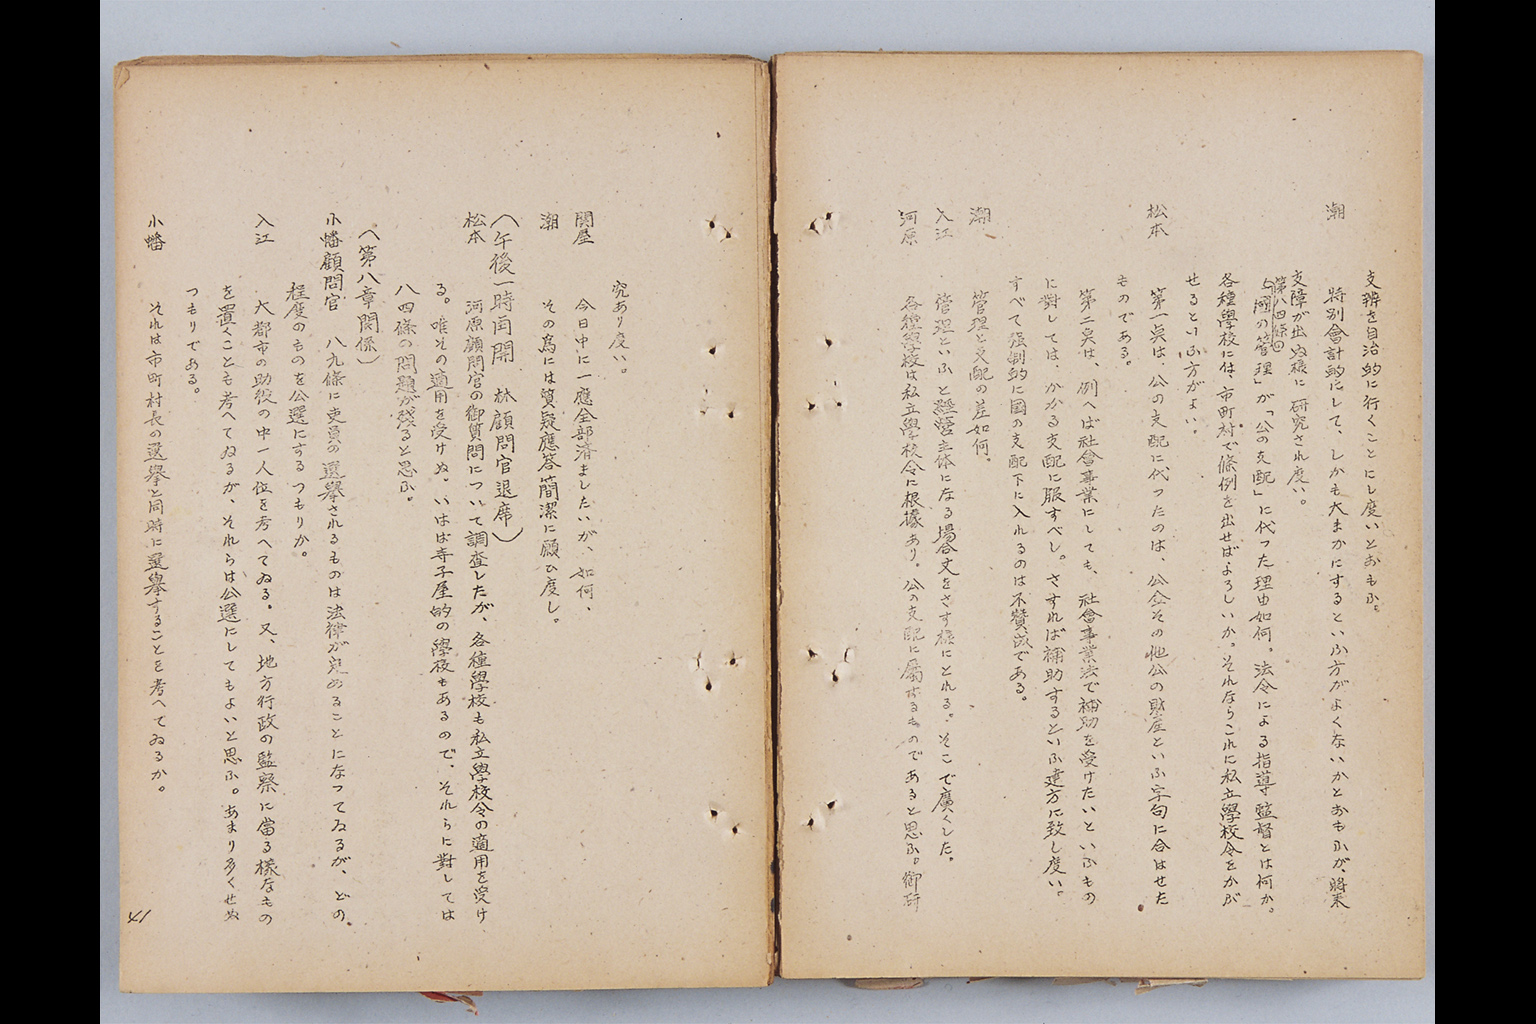 支辨を自治的に行くことにし度いとおもふ。
潮　特別會計的にして、しかも大まかにするといふ方がよくないかとおもふが、將來
支障が出ぬ様に研究され度い。
第八四條の
「國の管理」が「公の支配」に代った理由如何。法令による指導監督とは何か。
各種學校には市町村で條例を出せばよろしいか。それならこれに私立學校令をかぶ
せるといふ方がよい。
松本　第一点は、公の支配に代つたのは、公金その他公の財産といふ字句に合はせた
ものである。
第二点は、例へば社會事業にしても、社會事業法で補助を受けたいといふもの
に對しては、かかる支配に服すべし。さすれば補助するといふ建方に致し度い。
すべて强制的に国の支配下に入れるのは不賛成である。
潮　管理と支配の差如何。
入江　管理といふと經營主体になる場合丈をさす様にとれる。そこで廣くした。
河原　各種學校は私立學校令に根據あり。公の支配に屬するものであると思ふ。御研
究あり度い。
関屋　今日中に一應全部済ましたいが、如何、
潮　その爲には質疑應答簡潔に願ひ度し。
（午後一時再開　林顧問官退席）
松本　河原顧問官の御質問について調査したが、各種學校も私立學校令の適用を受け
る。唯その適用を受けぬ、いはば寺子屋的の學校もあるので、それらに對しては
八四條の問題が残ると思ふ。
（第八章関係）
小幡顧問官　八九條に吏員の選擧されるものは法律が定めることになつてゐるが、どの
程度のものを公選にするつもりか。
入江　大都市の助役の中一人位を考へてゐる。又、地方行政の監察に當る様なもの
を置くことも考へてゐるが、それらは公選にしてもよいと思ふ。あまり多くせぬ
つもりである。
小幡　それは市町村長の選擧と同時に選擧することを考へてゐるか。
41